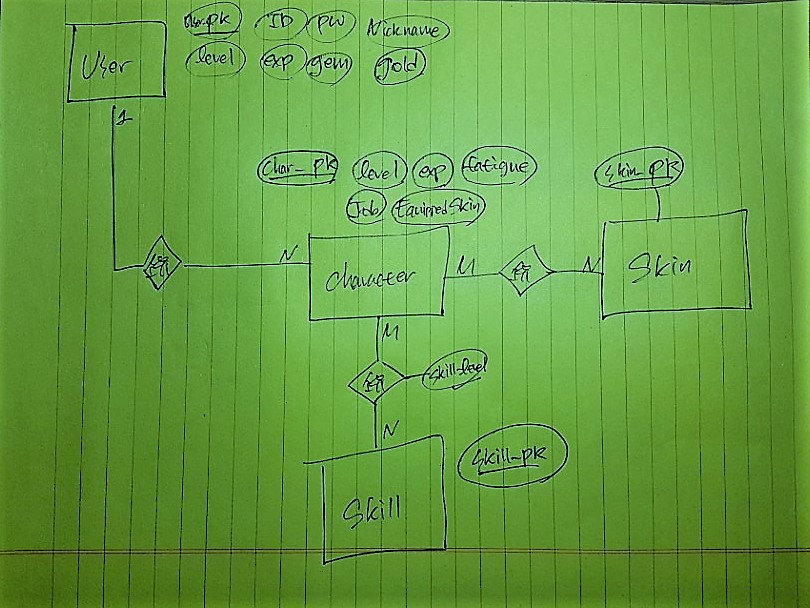 User_pk ID pw Nickname
User
level exp gem gold
1
Char_pk level exp fatigue
Skin_pk
Job EquippedSkin
N
Character
M
N
Skin
M
Skill-level
N
Skill_pk
Skill